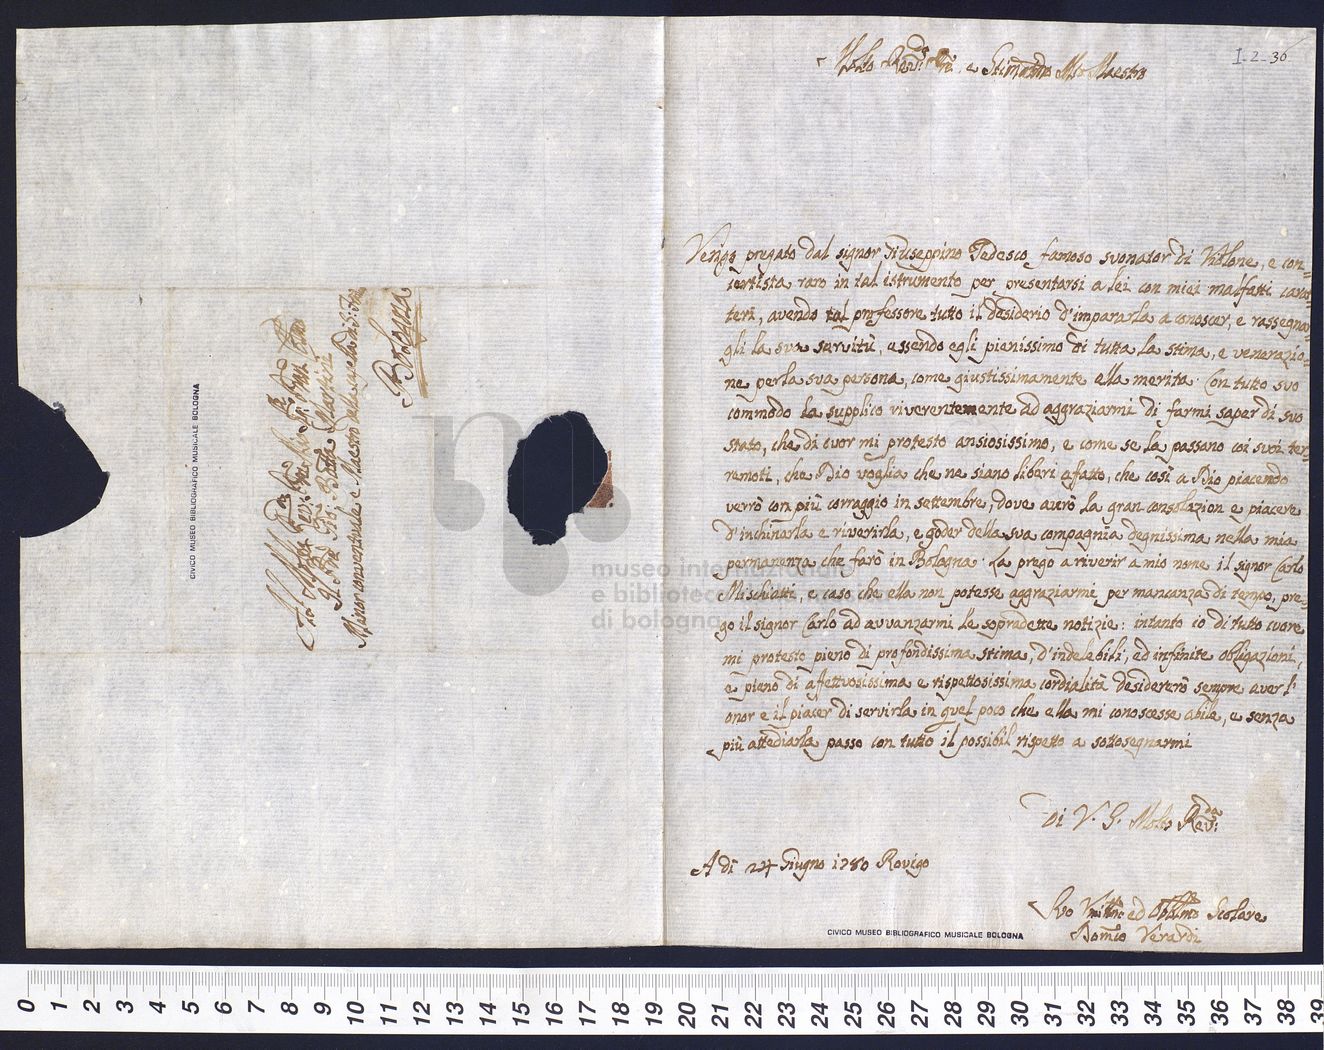 I-2-36
Molto Rev:do Pre, e Stimatmo Mio Maestro
Vengo pregato dal signor Giuseppino Tedesco famoso suonator di Violone, e con-
certista raro in tal istrumento per presentarsi a lei con miei malfatti carat-
teri, avendo tal professore tutto il desiderio d'impararla a conoscer, e rassegnar
gli la sua servitù, essendo egli pienissimo di tutta la stima, e venerazio-
ne per la sua persona, come giustissimamente ella merita. Con tutto suo
commodo la supplico viverentemente ad aggraziarmi di farmi saper di suo
stato, che di cuor mi protesto ansiosissimo, e come se la passano coi suoi ter-
remoti, che Dio voglia che ne siano liberi affatto, che così a Dio piacendo
verrò con più corraggio in settembre, dove avrò la gran consolazion e piacere
d'inchinarla e riverirla, e goder della sua compagnia degnissima nella mia
permanenza che farò in Bologna. La prego a riverir a mio nome il signor Carlo
Mischiatti, e caso che ella non potesse aggraziarmi per mancanza di tempo, pre-
go il signor Carlo ad avvanzarmi le sopradette notizie: intanto io di tutto cuore
mi protesto pieno di profondissima stima, d'indelebili, ed infinite obligazioni,
e pieno di affettuosissima e rispettosissima cordialità desidererò sempre aver l'
onor e il piacer di servirla in quel poco che ella mi conoscesse abile, e senza
più attediarla passo con tutto il possibil rispetto a sottosegnarmi
Di V. S. Molto Rev:da
A di 24 Giugno 1780 Rovigo
Suo Umilmo ed Obblmo Scolare
Domco Verardi
CIVICO MUSEO BIBLIOGRAFICO MUSICALE BOLOGNA
Al Molto
Il Pre Gio: Batta Martini
Minor conventuale e Maestro della capella di S: Frco
Bologna
CIVICO MUSEO BIBLIOGRAFICO MUSICALE BOLOGNA
museo internazionale
e biblioteca della musica
di bologna
0 1 2 3 4 5 6 7 8 9 10 11 12 13 14 15 16 17 18 19 20 21 22 23 24 25 26 27 28 29 30 31 32 33 34 35 36 37 38 39